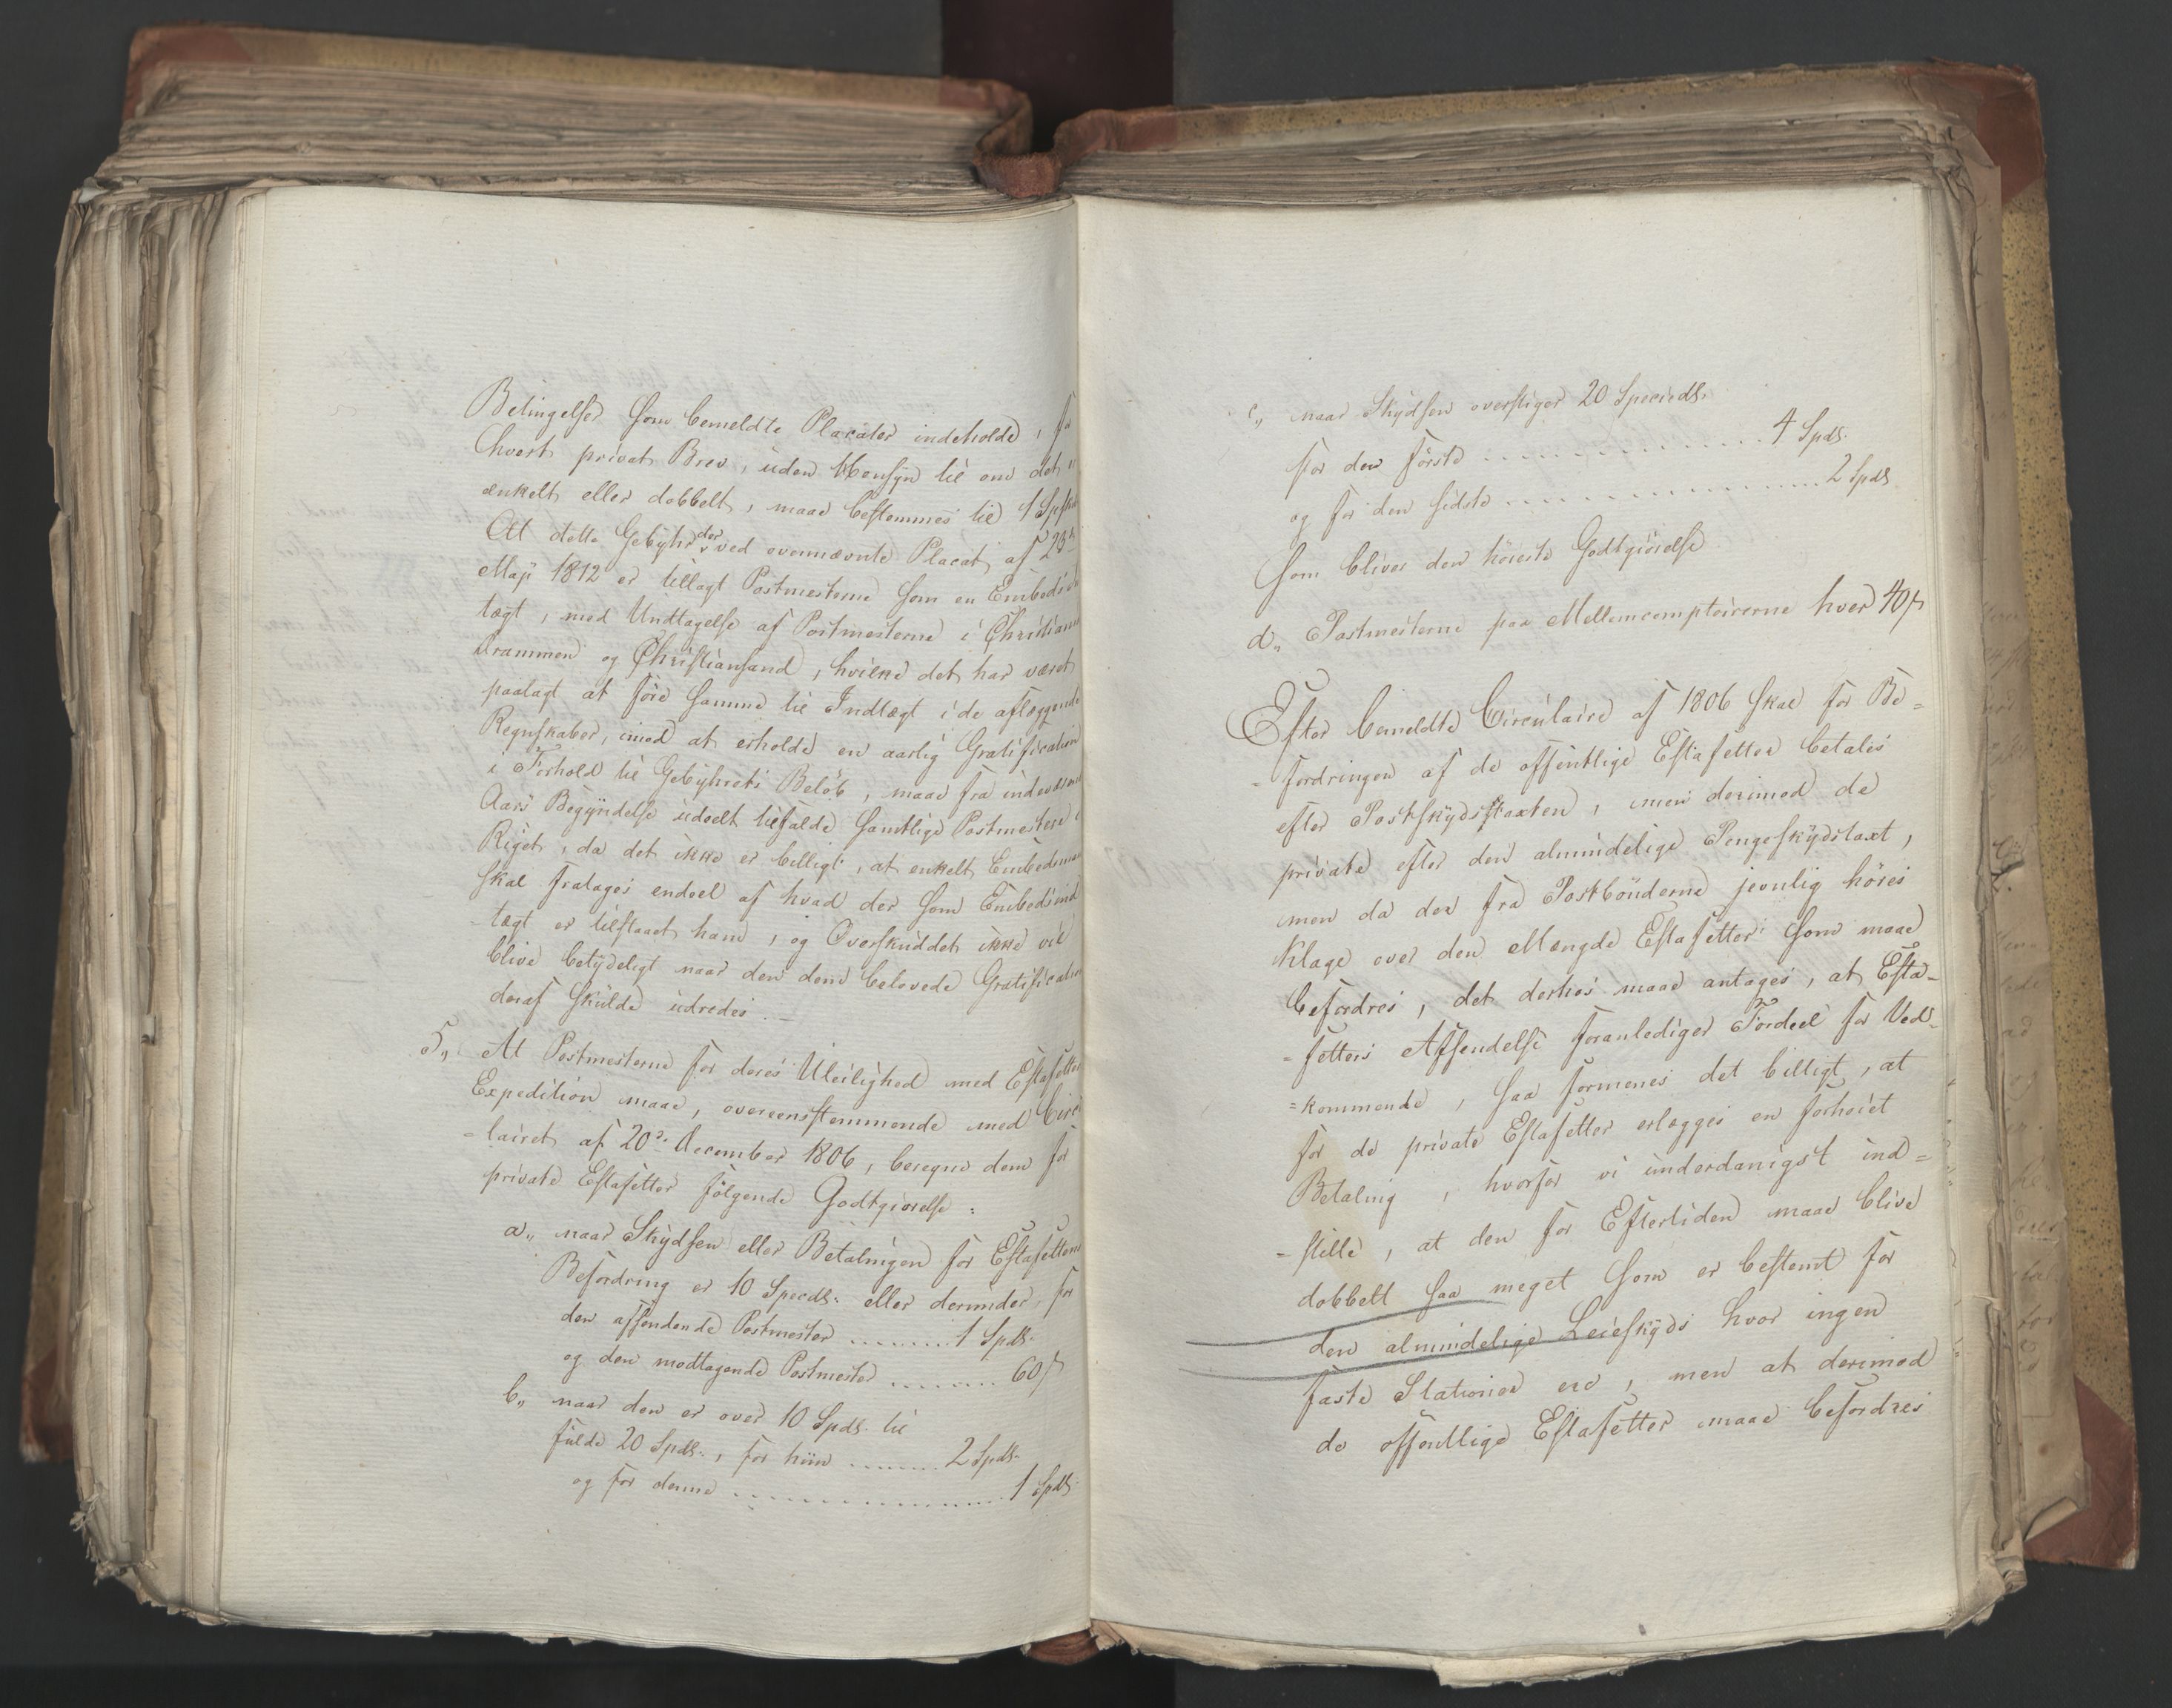 Betingelser som bemeldte Placater indeholde, for
hvert privat Brev, uden Hensyn til om det er
enkelt eller dobbelt, maae bestemmes til 1 Spskil
At dette Gebyhr der ved ovennævnte Placat af 23de
Maji 1812 er tillagt Postmesterne som en Embedsind
tægt, med Undtagelse af Postmesterne i Christiania
Drammen og Christiansand, hvilke det har været
paalagt at före samme til Indtægt i de aflæggende
Regnskaber, imod at erholde en aarlig Gratification
i Forhold til Gebyhrets Belöb, maae fra indeværende
Aars Begyndelse udeelt tilfalde samtlige Postmestere i
Riget, da det ikke er billigt, at enkelt Embedsmand
skal fratages endeel af hvad der som Embedsind
-tægt er tilstaaet ham, og Overskuddet ikke vil
blive betydeligt naar den dem belovede Gratification
deraf skulde udredes. -
5,, At Postmesterne for deres Uleilighed med Estafetters
Expedition maae, overeensstemmende med Circu
-lairet af 20de December 1806, beregne dem for
private Estafetter følgende Godtgiörelse:
a,, naar Skydsen eller Betalingen for Estafettens
Befordring er 10 Specdlr. eller derunder, for
den affendende Postmester ......... 1 Spdlr.
og den modtagende Postmester ........ 60 s
b,, naar den er over 10 Spdlr. til
fulde 20 Spdlr., for hiin ........ 2 Spdlr.
og for denne .................. 1 Spdlr.
c,, naar Skydsen overstiger 20 Speciedlr.
for den første .................. 4 Spdlr.
og for den sidste .................. 2 Spdlr
som bliver den höieste Godtgiörelse
d,, Postmesterne paa Mellemcomptoirerne hver 40 s
Efter bemeldte Circulaire af 1806 skal for Be=
-fordringen af de offentlige Estafetter betales
efter Postskydstaxten, men derimod de
private efter den almindelige Pengeskydstaxt,
men da der fra Postbönderne jevnlig höres
Klage over den Mængde Estafetter som maae
befordres, det derhos maae antages, at Esta-
=fetters Affendelse foranlediger Fordeel for Ved-
=kommende, saa formenes det billigt, at
for de private Estafetter erlægges en forhöiet
Betaling, hvorfor vi underdanigst ind=
-stille, at den for Eftertiden maae blive
dobbelt saa meget som er bestemt for
den almindelige Leieskyds hvor ingen
faste Stationer ere, men at derimod
de offentlige Estafetter maae befordres